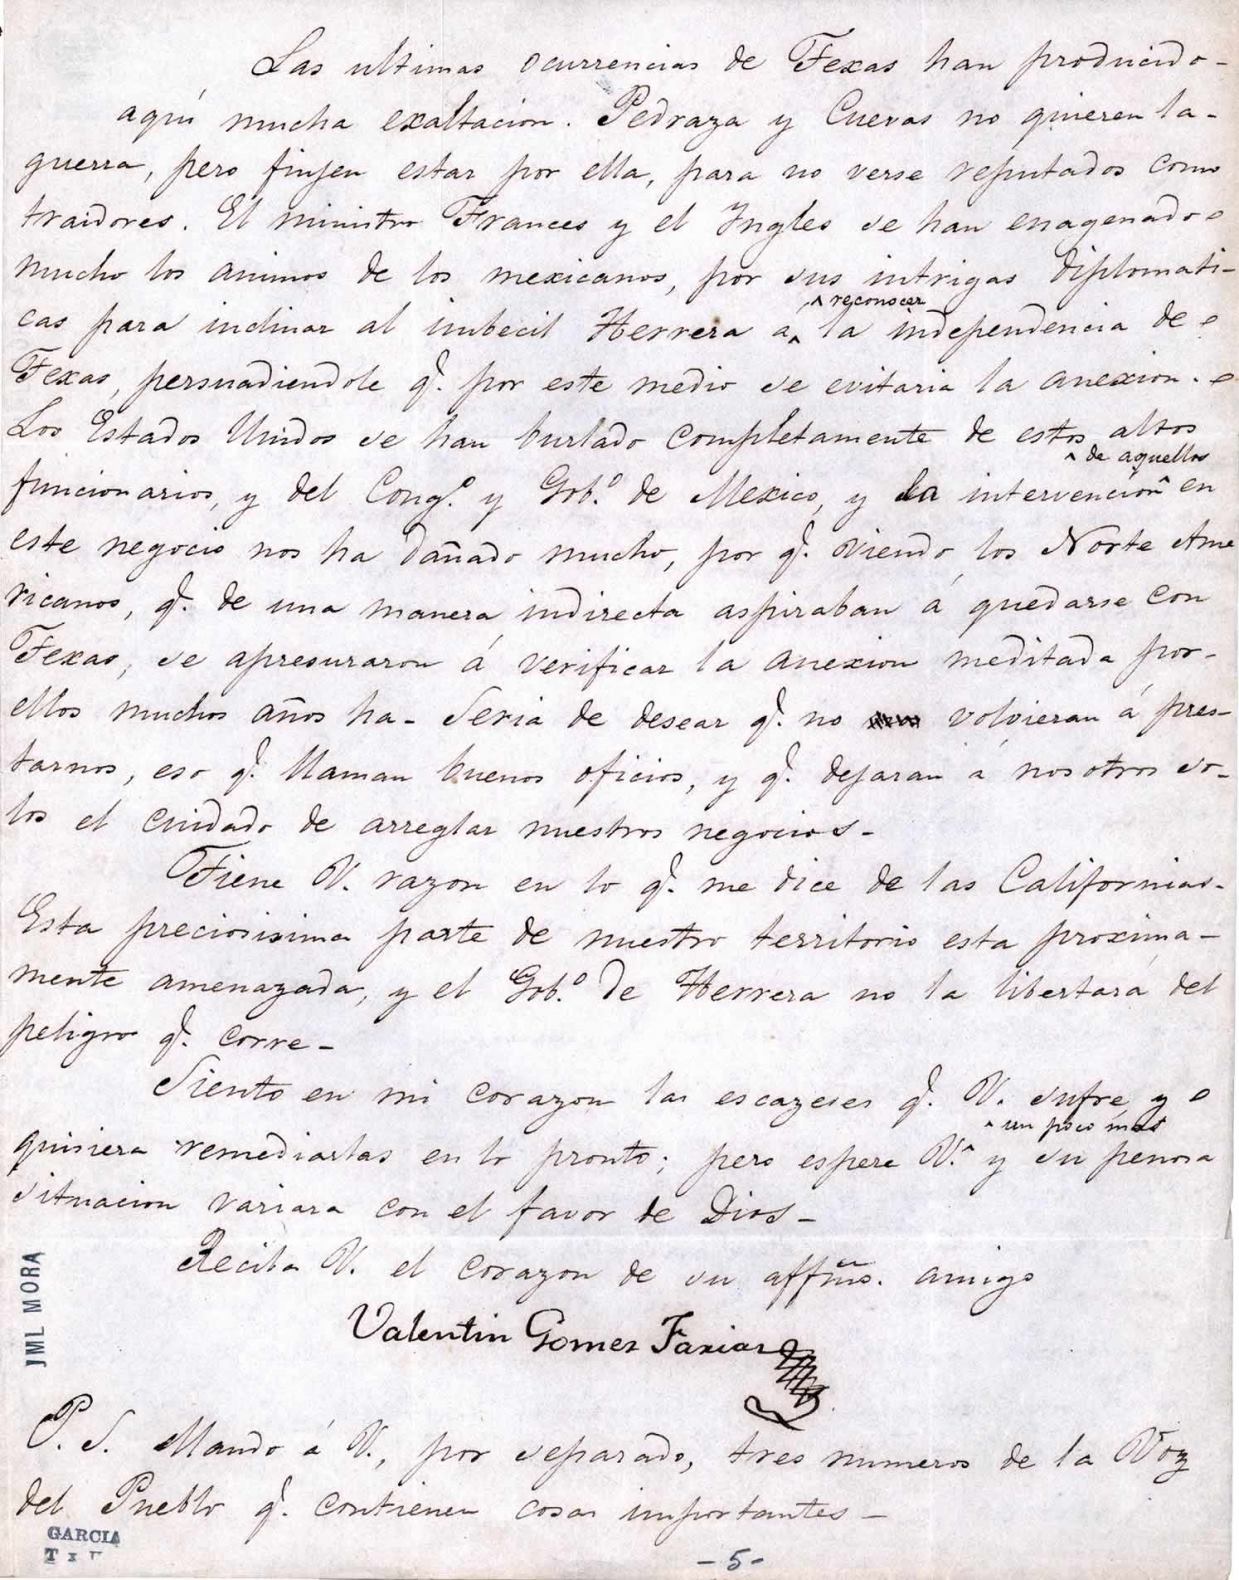 Las ultimas ocurrencias de Texas han producido-
aquí mucha exaltacion. Pedraza y Cuevas no quieren la-
guerra, pero finjen estar por ella, para no verse reputados como
traidores. El ministro Frances y el Ingles se han enagenado
mucho los animos de los mexicanos, por sus intrigas diplomati-
^ reconocer
cas para inclinar al imbecil Herrera a ^ la independencia de
Texas, persuadiendole q. por este medio se evitaria la anexion.
Los Estados Unidos se han burlado completamente de estos altos
^ de aquellos
funcionarios, y del Cong.º y Gob.º de Mexico, y la intervención ^ en
este negocio nos ha dañado mucho, por q. viendo los Norte Ame
ricanos, q. de una manera indirecta aspiraban á quedarse con
Texas, se apresuraron á verificar la anexion meditada por-
ellos muchos años ha- Seria de desear q. no volvieran á pres-
tarnos, eso q. llaman buenos oficios, y q. dejaran á nosotros so-
los el cuidado de arreglar nuestros negocios-
Tiene V. razon en lo q. me dice de las Californias-
Esta preciosisima parte de nuestro territorio esta proxima-
mente amenazada, y el Gob.º de Herrera no la libertará del
peligro q. corre-
Siento en mi corazon las escazeses q. V. sufre y
^ un poco mas
quisiera remediarlas en lo pronto; pero espere V. ^ y su penosa
situacion variara con el favor de Dios-
Reciba V. el corazon de su affmo. amigo
Valentin Gomez Farias
P. S. Mando á V., por separado, tres numeros de la Voz
del Pueblo q. contienen cosas importantes-
-5-
JML MORA
GARCIA